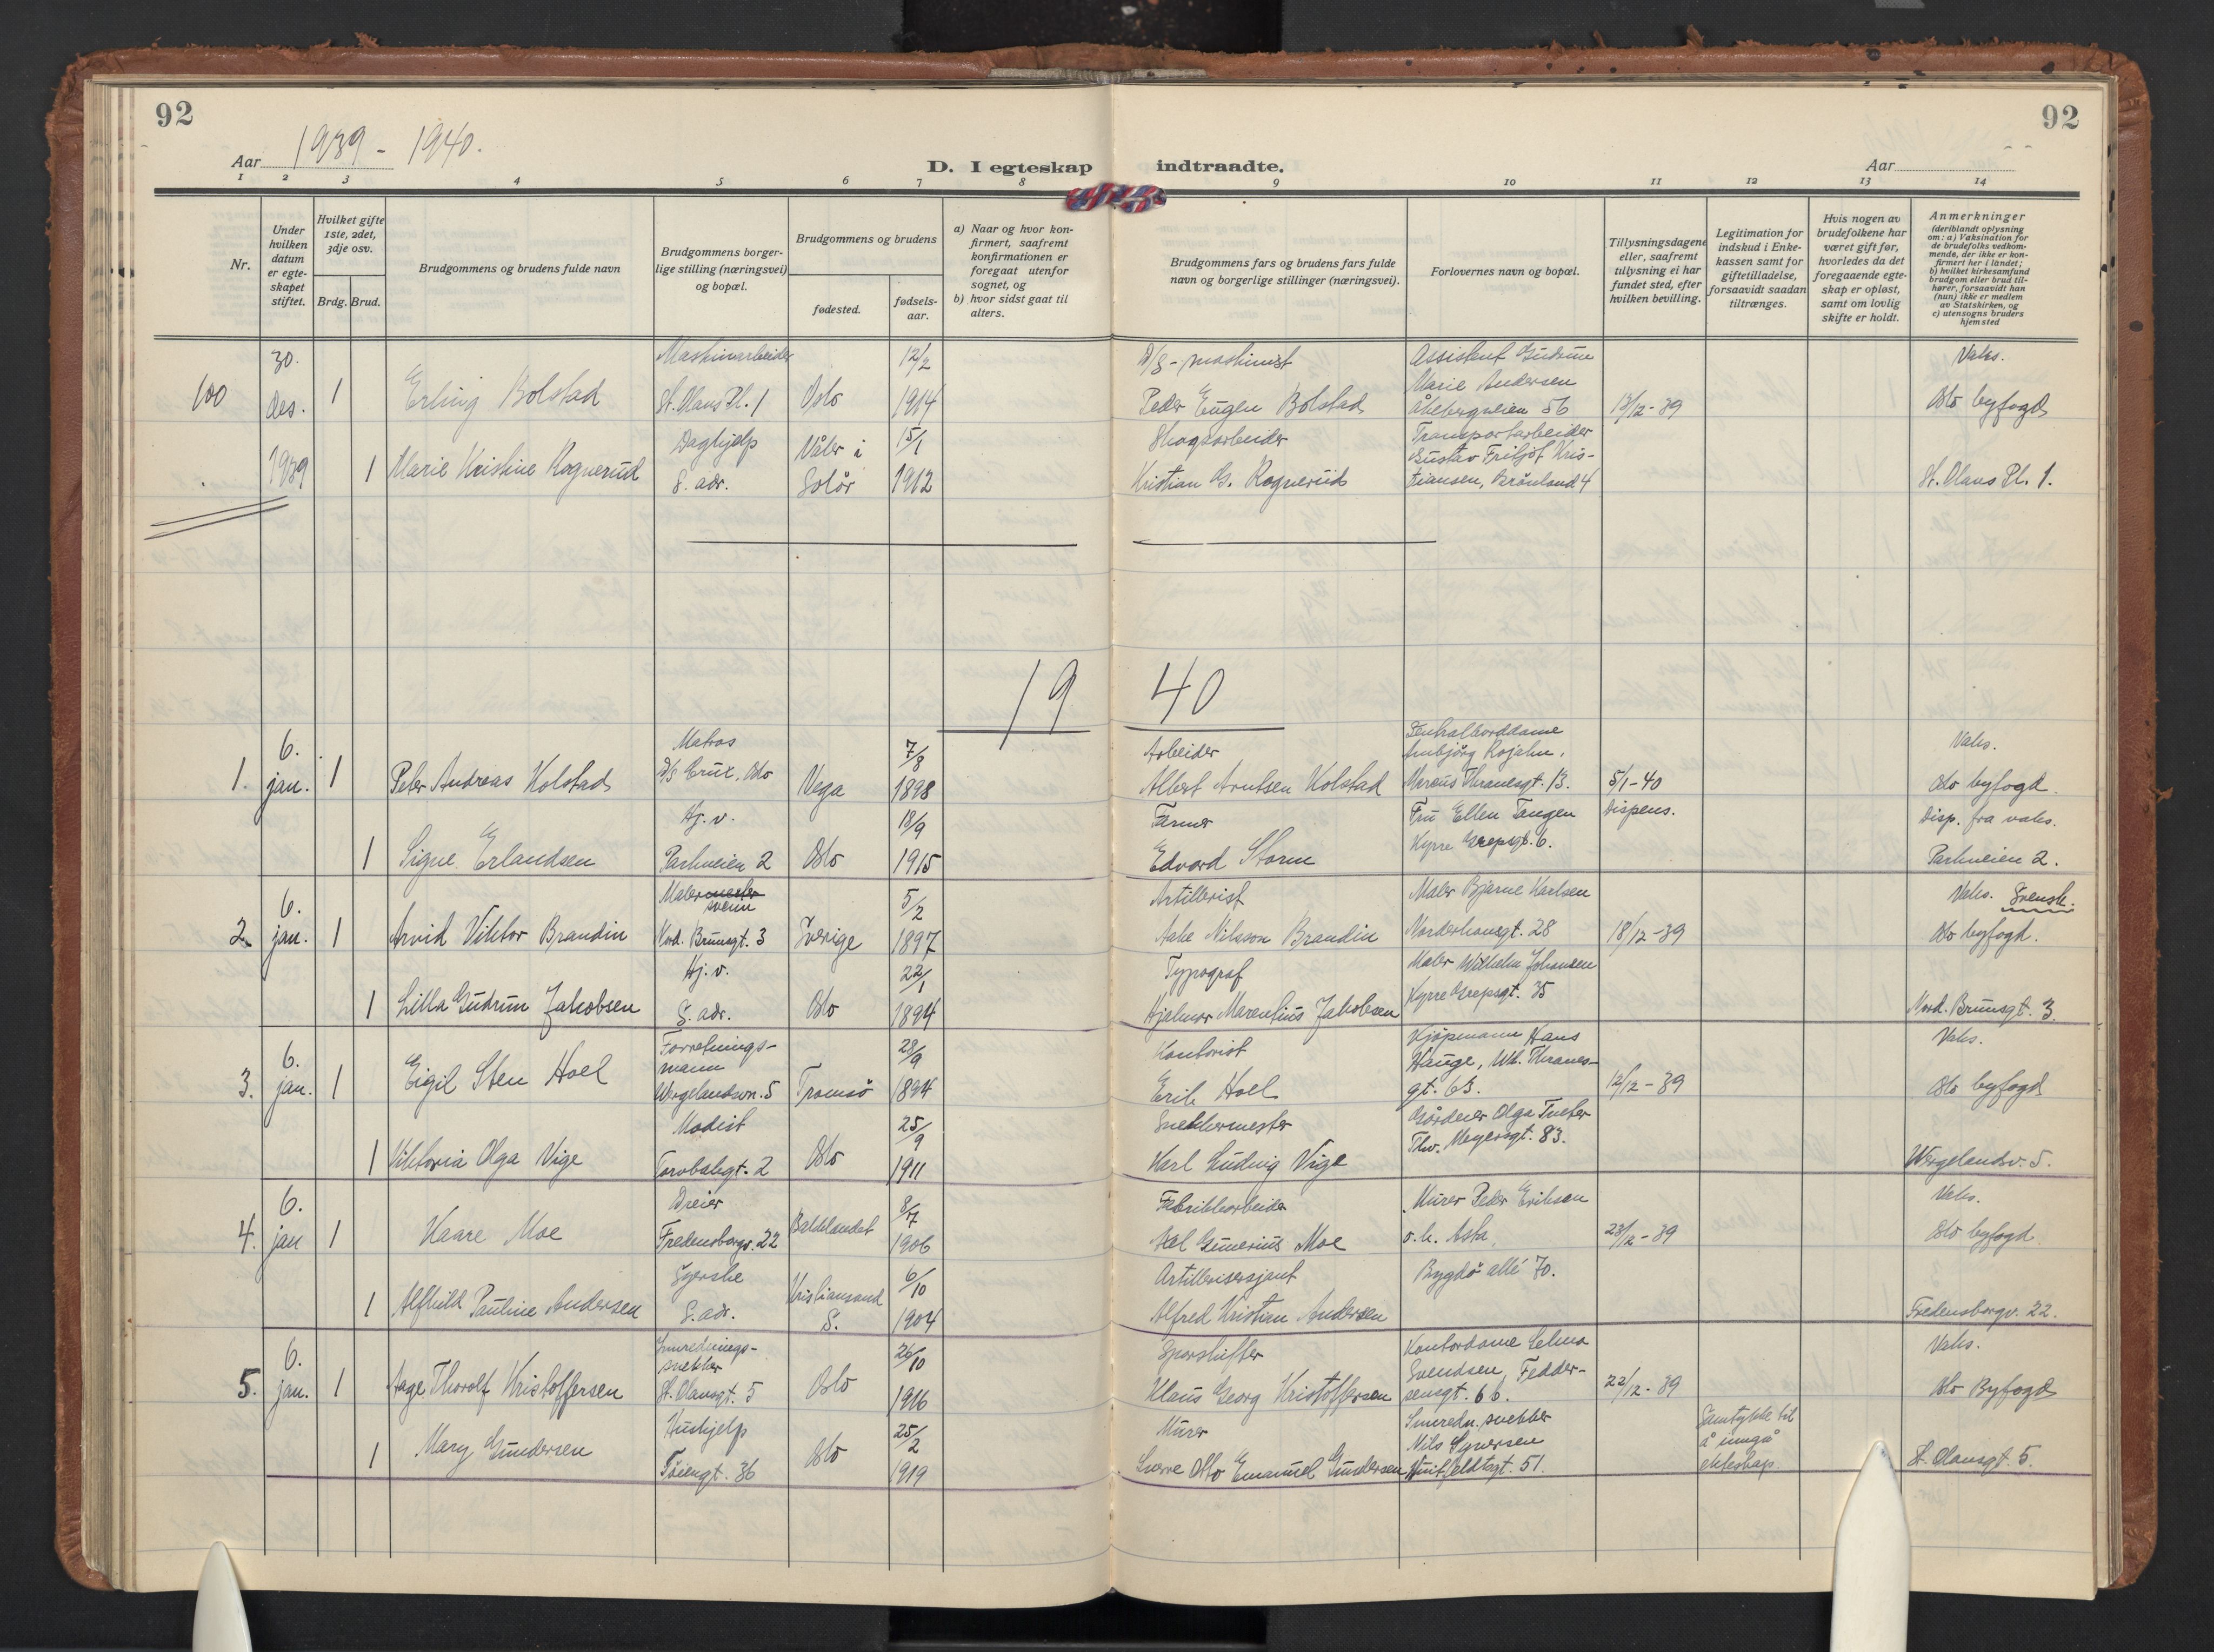 92
92
Aar 1939 - 1940.
D. I egteskap indtraadte.
Aar
1 2 3 4 5 6 7 8 9 10 11 12 13 14
Nr.
Under hvilken datum er egteskapet stiftet.
Hvilket gifte 1ste, 2det, 3dje osv.
Brdg. Brud.
Brudgommens og brudens fulde navn
Brudgommens borgerlige stilling (næringsvei) og bopæl.
Brudgommens og brudens
fødested.
fødselsaar.
a) Naar og hvor konfirmert, saafremt konfirmationen er foregaat utenfor sognet, og
b) hvor sidst gaat til alters.
Brudgommens fars og brudens fars fulde navn og borgerlige stillinger (næringsvei).
Forlovernes navn og bopæl.
Tillysningsdagene eller, saafremt tillysning ei har fundet sted, efter hvilken bevilling.
Legitimation for indskud i Enkekassen samt for giftetilladelse, forsaavidt saadan tiltrænges.
Hvis nogen av brudefolkene har været gift før, hvorledes da det foregaaende egteskap er opløst, samt om lovlig skifte er holdt.
Anmerkninger (deriblandt oplysning om: a) Vaksination for de brudefolks vedkommende, der ikke er konfirmert her i landet; b) hvilket kirkesamfund brudgom eller brud tilhører, forsaavidt han (hun) ikke er medlem av Statskirken, og c) utensogns bruders hjemsted
100 30. des. 1939 1 Erling Bolstad Maskinarbeider St. Olavs Pl. 1 Oslo 12/2 1914 D/S-maskinist Peder Eugen Bolstad Assistent Gudrun Marie Andersen Åkebergveien 56 13/12-39 Vaks. Oslo byfogd
1 Marie Kristine Rognerud Daghjelp S. adr. Våler i Solør 15/1 1912 Skogsarbeider Kristian G. Rognerud Transportarbeider Gustav Fritjof Kristiansen, Grønland 4 St. Olavs Pl. 1.
1940
1. 6. jan. 1 Peter Andreas Kolstad Matros D/S Crux, Oslo Vega 7/8 1898 Arbeider Albert Arntsen Kolstad Sentralborddame Annbjørg Rojahn, Marcus Thranesgt. 13. 5/1-40 Vaks. Oslo byfogd.
1 Signe Erlandsen Hj. v. Parkveien 2 Oslo 18/9 1915 Farmer Edvard Storm Fru Ellen Tangen Kyrre Grepsgt. 6. Dispens. Disp. fra vaks. Parkveien 2.
2. 6. jan. 1 Arvid Viktor Brandin Malermester svenn Nord. Brunsgt. 3 Sverige 5/2 1897 Artillerist Aake Nilsson Brandin Maler Bjarne Karlsen Norderhovsgt. 28 18/12-39 Vaks. Svensk. Oslo byfogd.
1 Lilla Gudrun Jakobsen Hj. v. S. adr. Oslo 22/1 1894 Typograf Hjalmar Marentius Jakobsen Maler Wilhelm Johansen Kyrre Grepsgt. 35 Nord. Brunsgt. 3.
3. 6. jan. 1 Eigil Sten Hoel Forretningsmann Wergelandsvn. 5 Tromsø 28/9 1894 Kontorist Erik Hoel Kjøpmann Hans Hauge, Wb. Thranesgt. 63. 12/12-39 Vaks. Oslo byfogd
1 Viktoria Olga Vige Modist Torvbakkgt. 2 Oslo 25/9 1911 Snekkermester Karl Ludvig Vige Gårdeier Olga Tveter Thv. Meyersgt. 83. Wergelandsv. 5.
4. 6. jan 1 Kaare Moe Dreier Fredensborgv. 22 8/7 1906 Fabrikkarbeider Axel Gunerius Moe Murer Peder Eriksen o.h. Asta, 23/12-39 Vaks. Oslo byfogd
1 Alfhild Pauline Andersen Syerske S. adr. Kristiansand S. 6/10 1904 Artillerisersjant Alfred Kristian Andersen Bygdø allé 70. Fredensborgv. 22.
5. 6. jan. 1 Aage Thorolf Kristoffersen Innrednings-snekker St. Olavsgt. 5 Oslo 26/10 1916 Sporskifter Klaus Georg Kristoffersen Kontordame Selma Svendsen, Feddersensgt. 6 b. 22/12-39 Vaks. Oslo Byfogd
1 Mary Gundersen Hushjelp Tøiengt. 36 Oslo 25/2 1919 Murer Sverre Otto Emanuel Gundersen Innredn. snekker Nils Syversen Huitfeldtsgt. 51. Samtykke til å inngå ekteskap. St. Olavsgt. 5.